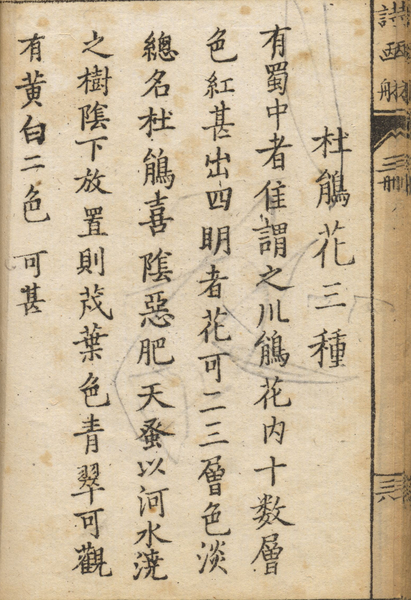 杜鵑花三種
有蜀中者佳謂之川鵑花内十数層
色紅甚出四明者花可二三層色淡
總名杜鵑喜隂惡肥天蚤以河水澆
之樹隂下放置則茂葉色青翠可觀
有黄白二色可甚